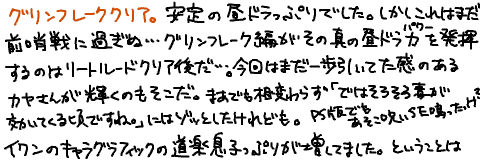 グリンフレーククリア。安定の昼ドラっぷりでした。しかしこれはまだ
前哨戦に過ぎぬ…グリンフレーク編がその真の昼ドラ力を発揮
パワー
するのはリートルードクリア後だ…。今回はまだ一歩引いてた感のある
カヤさんが輝くのもそこだ。まあでも相変わらず「ではそろそろ毒が
効いてくる頃ですね。」にはゾッとしたけれども。PS版でもあそこ呪いSE鳴ったっけ?
イワンのキャラグラフィックの道楽息子っぷりが増してました。ということは